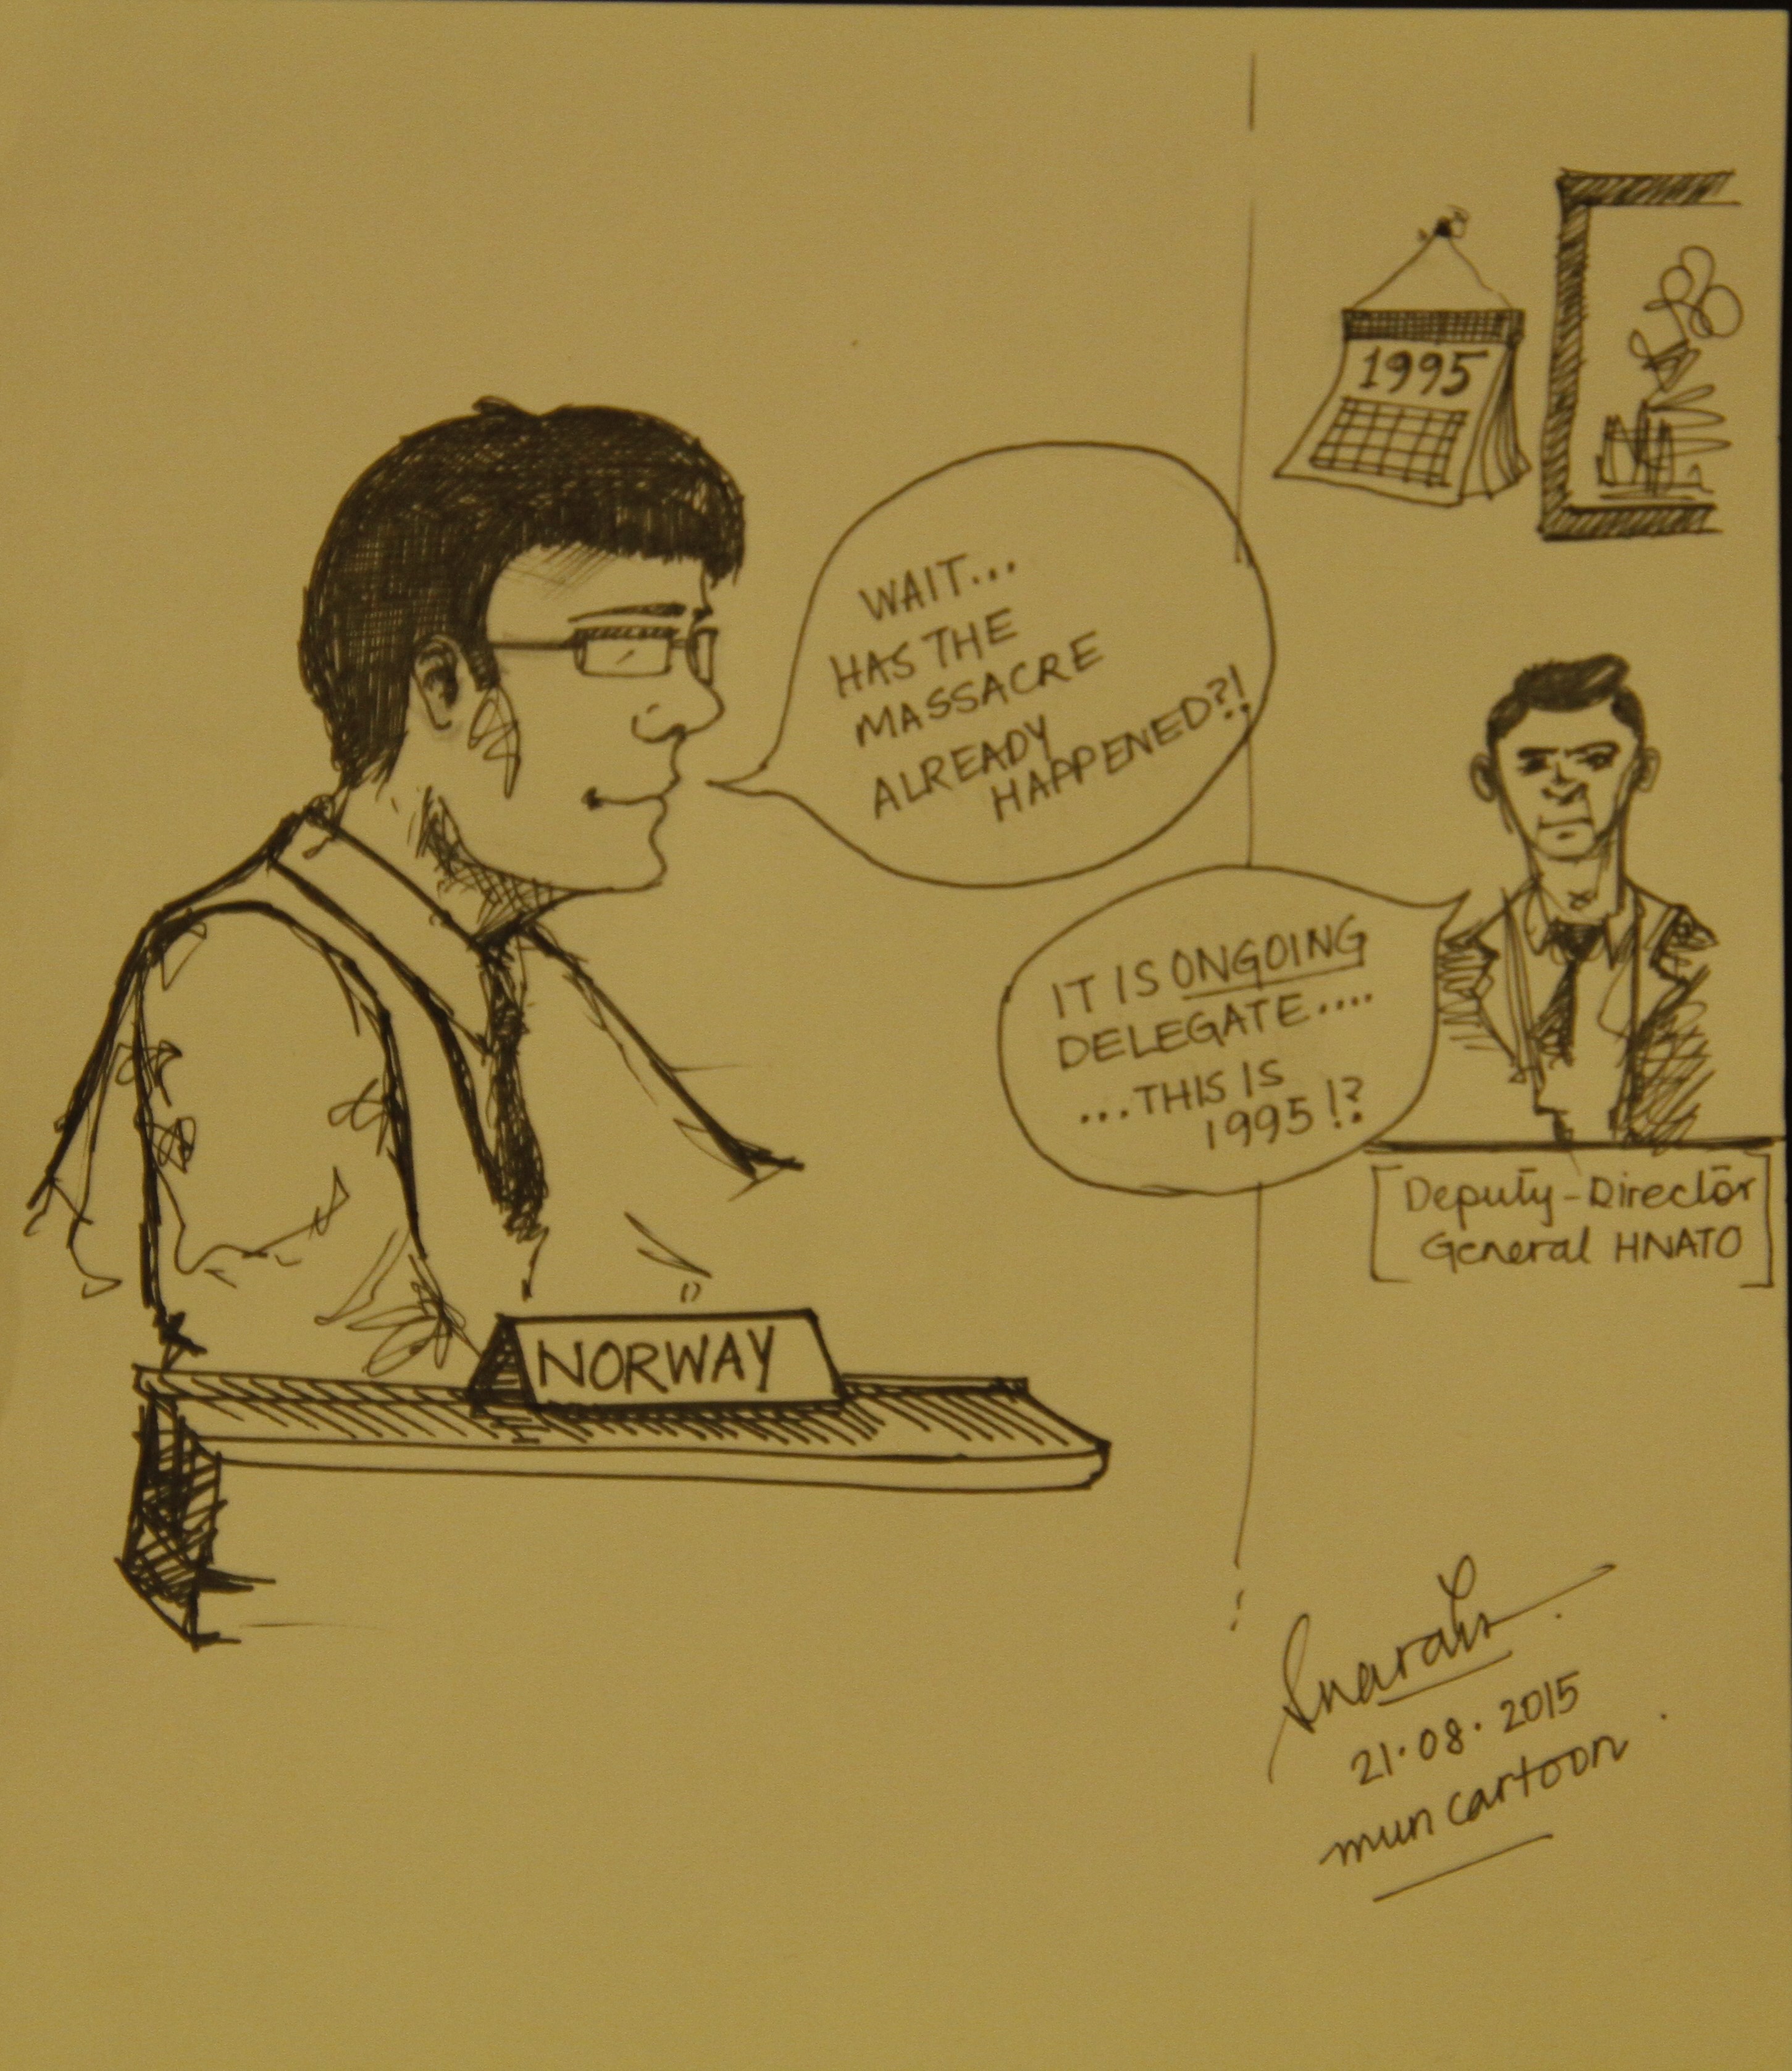 1995
WAIT...
HAS THE
MASSACRE
ALREADY
HAPPENED?!
IT IS ONGOING
DELEGATE....
...THIS IS
1995!?
Deputy-Director
General HNATO
NORWAY
21.08.2015
mun cartoon